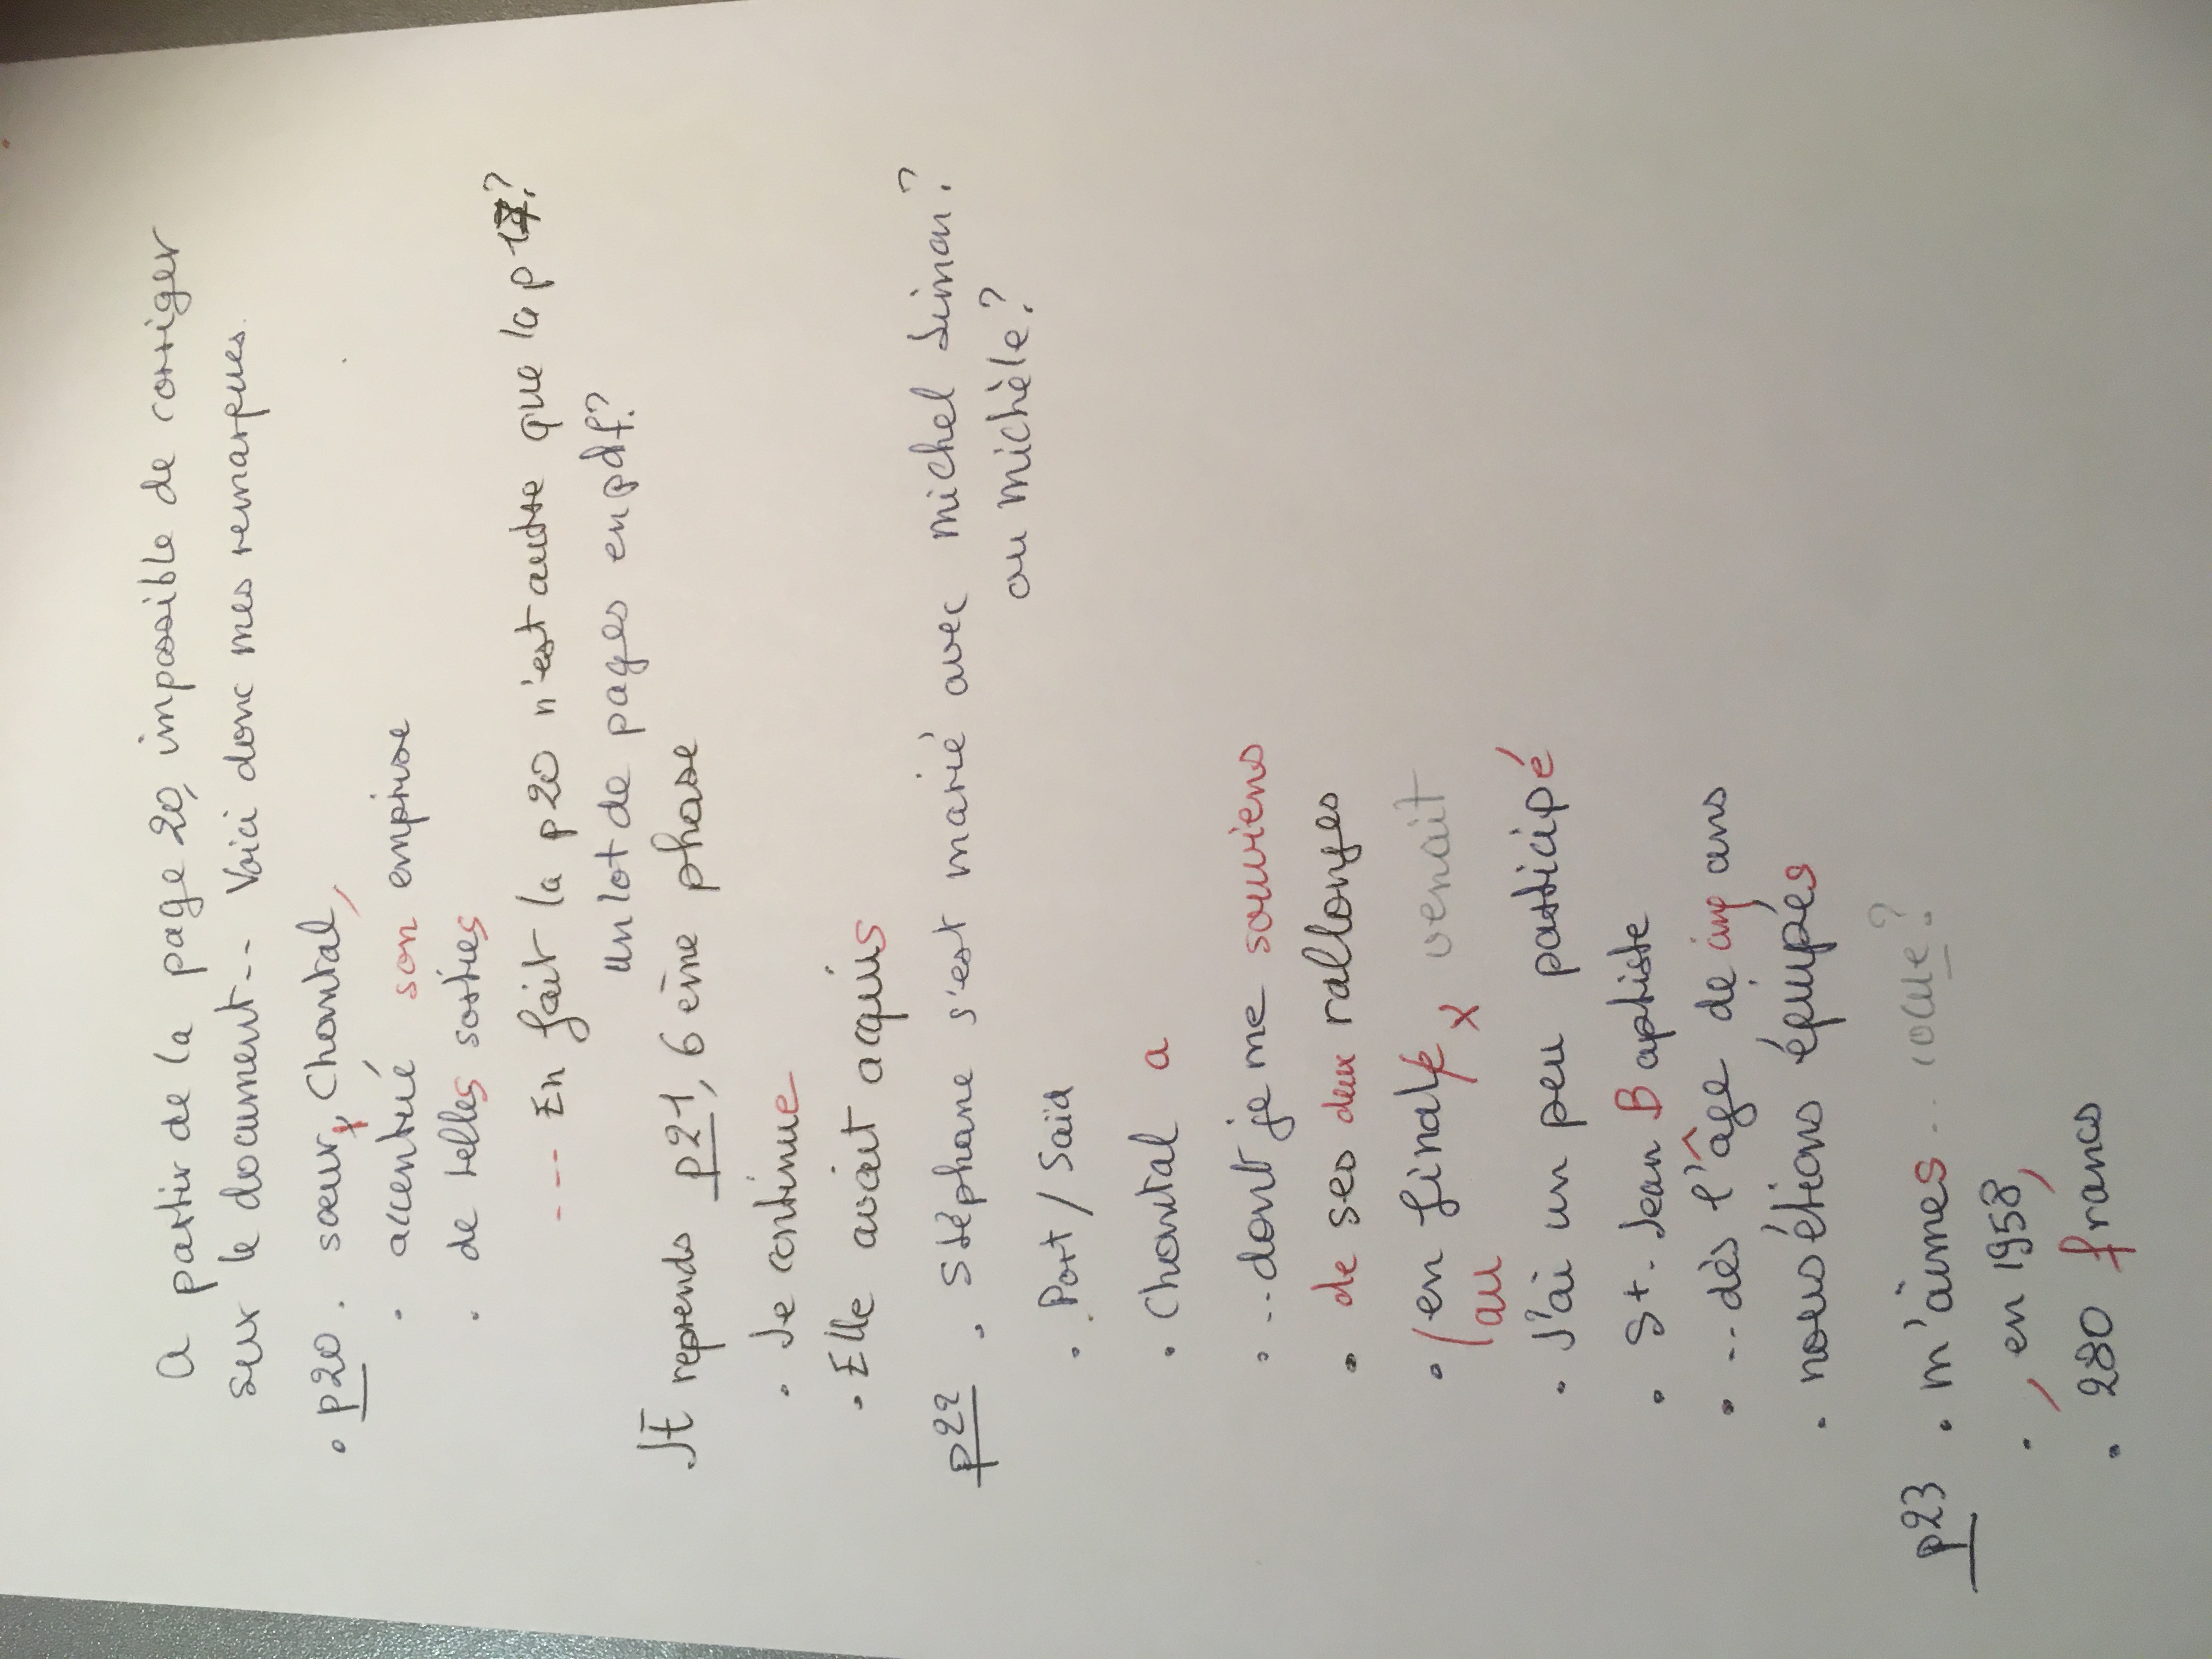 A partir de la page 20, impossible de corriger
sur le document-- Voici donc mes remarques.
• p20 . sœur, Chantal,
. accentué son emprise
. de telles sorties
--- En fait la p20 n'est autre que la p17?
Un lot de pages en pdf?
JE reprends p21, 6ème phase
. Je continue
. Elle avait acquis
p22 . Stéphane s'est marié avec Michel Simon?
ou Michèle?
. Port / Saïd
. Chantal a
. ..dont je me souviens
. de ses deux rallonges
. en finale x venait
au
. J'ai un peu participé
. St-Jean Baptiste
. ..dès l'âge de cinq ans
. nous étions équipés
p23 . m'aimes ..
. , en 1958,
. 280 francs